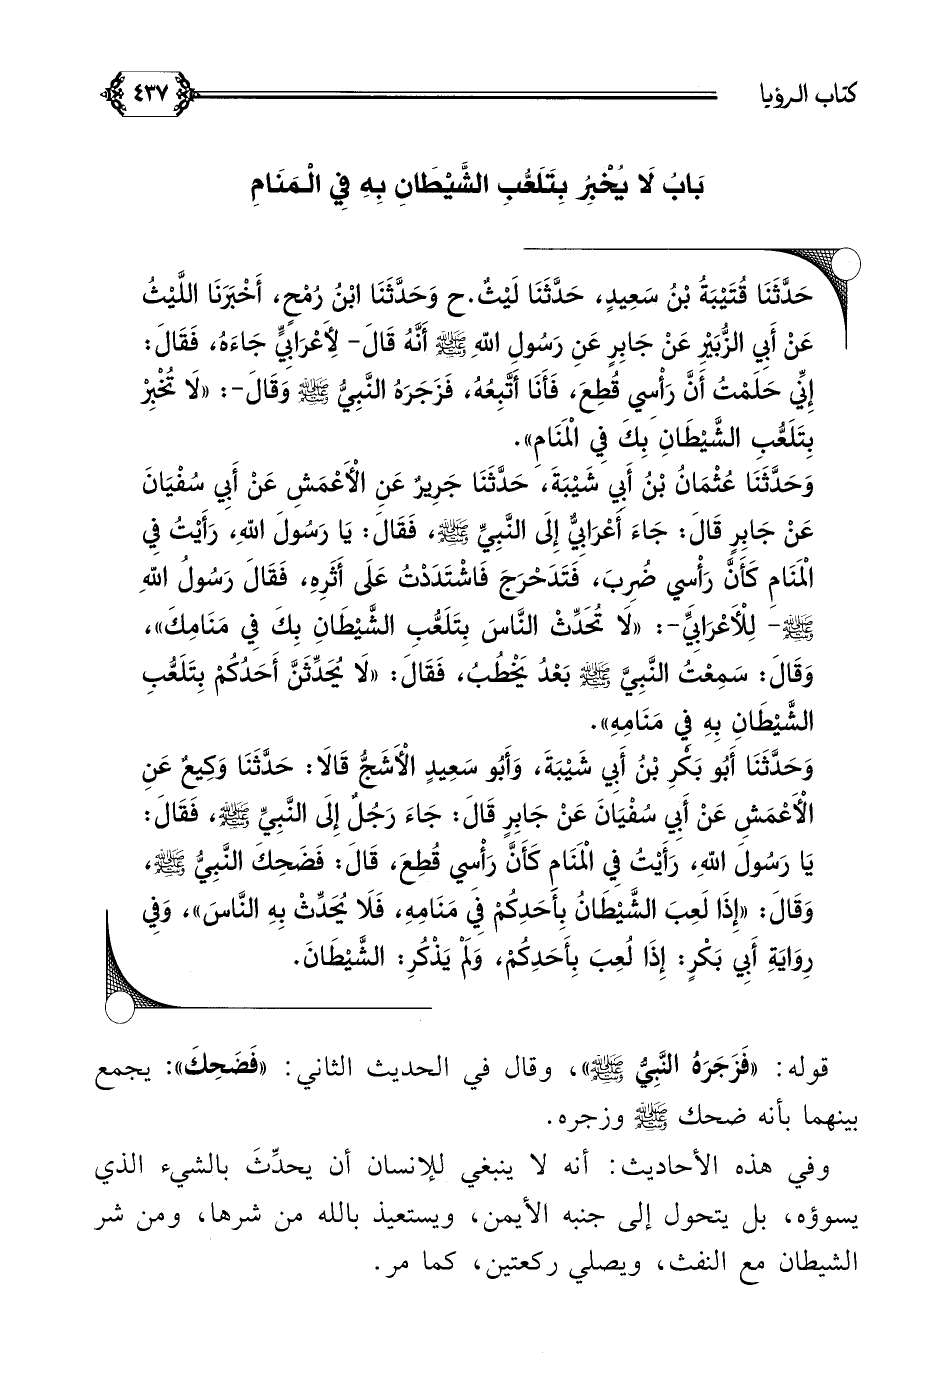 كتاب الرؤيا ٤٣٧
بَابُ لَا يُخْبِرُ بِتَلَعُّبِ الشَّيْطَانِ بِهِ فِي الْمَنَامِ
حَدَّثَنَا قُتَيْبَةُ بْنُ سَعِيدٍ، حَدَّثَنَا لَيْثٌ. ح وَحَدَّثَنَا ابْنُ رُمْحٍ، أَخْبَرَنَا اللَّيْثُ
عَنْ أَبِي الزُّبَيْرِ عَنْ جَابِرٍ عَنِ رَسُولِ اللهِ ﷺ أَنَّهُ قَالَ- لِأَعْرَابِيٍّ جَاءَهُ، فَقَالَ:
إِنِّي حَلَمْتُ أَنَّ رَأْسِي قُطِعَ، فَأَنَا أَتَّبِعُهُ، فَزَجَرَهُ النَّبِيُّ ﷺ وَقَالَ-: «لَا تُخْبِرْ
بِتَلَعُّبِ الشَّيْطَانِ بِكَ فِي الْمَنَامِ».
وَحَدَّثَنَا عُثْمَانُ بْنُ أَبِي شَيْبَةَ، حَدَّثَنَا جَرِيرٌ عَنِ الْأَعْمَشِ عَنْ أَبِي سُفْيَانَ
عَنْ جَابِرٍ قَالَ: جَاءَ أَعْرَابِيٌّ إِلَى النَّبِيِّ ﷺ، فَقَالَ: يَا رَسُولَ اللهِ، رَأَيْتُ فِي
الْمَنَامِ كَأَنَّ رَأْسِي ضُرِبَ، فَتَدَحْرَجَ فَاشْتَدَدْتُ عَلَى أَثَرِهِ، فَقَالَ رَسُولُ اللهِ
ﷺ- لِلْأَعْرَابِيِّ-: «لَا تُحَدِّثْ النَّاسَ بِتَلَعُّبِ الشَّيْطَانِ بِكَ فِي مَنَامِكَ»،
وَقَالَ: سَمِعْتُ النَّبِيَّ ﷺ بَعْدُ يَخْطُبُ، فَقَالَ: «لَا يُحَدِّثَنَّ أَحَدُكُمْ بِتَلَعُّبِ
الشَّيْطَانِ بِهِ فِي مَنَامِهِ».
وَحَدَّثَنَا أَبُو بَكْرِ بْنُ أَبِي شَيْبَةَ، وَأَبُو سَعِيدٍ الْأَشَجُّ قَالَا: حَدَّثَنَا وَكِيعٌ عَنِ
الْأَعْمَشِ عَنْ أَبِي سُفْيَانَ عَنْ جَابِرٍ قَالَ: جَاءَ رَجُلٌ إِلَى النَّبِيِّ ﷺ، فَقَالَ:
يَا رَسُولَ اللهِ، رَأَيْتُ فِي الْمَنَامِ كَأَنَّ رَأْسِي قُطِعَ، قَالَ: فَضَحِكَ النَّبِيُّ ﷺ،
وَقَالَ: «إِذَا لَعِبَ الشَّيْطَانُ بِأَحَدِكُمْ فِي مَنَامِهِ، فَلَا يُحَدِّثْ بِهِ النَّاسَ»، وَفِي
رِوَايَةِ أَبِي بَكْرٍ: إِذَا لُعِبَ بِأَحَدِكُمْ، وَلَمْ يَذْكُرِ: الشَّيْطَانَ.
قوله: «فَزَجَرَهُ النَّبِيُّ ﷺ»، وقال في الحديث الثاني: «فَضَحِكَ»: يجمع
بينهما بأنه ضحك ﷺ وزجره.
وفي هذه الأحاديث: أنه لا ينبغي للإنسان أن يحدِّثَ بالشيء الذي
يسوؤه، بل يتحول إلى جنبه الأيمن، ويستعيذ بالله من شرها، ومن شر
الشيطان مع النفث، ويصلي ركعتين، كما مر.